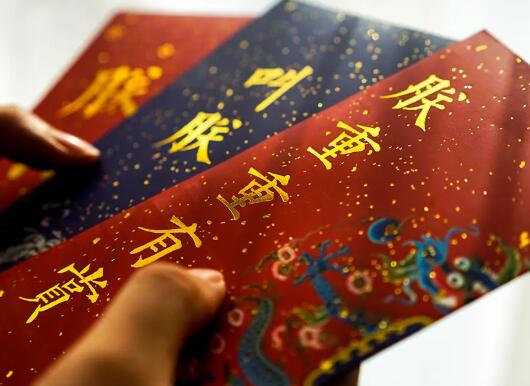 朕重重有賞
叫朕
朕